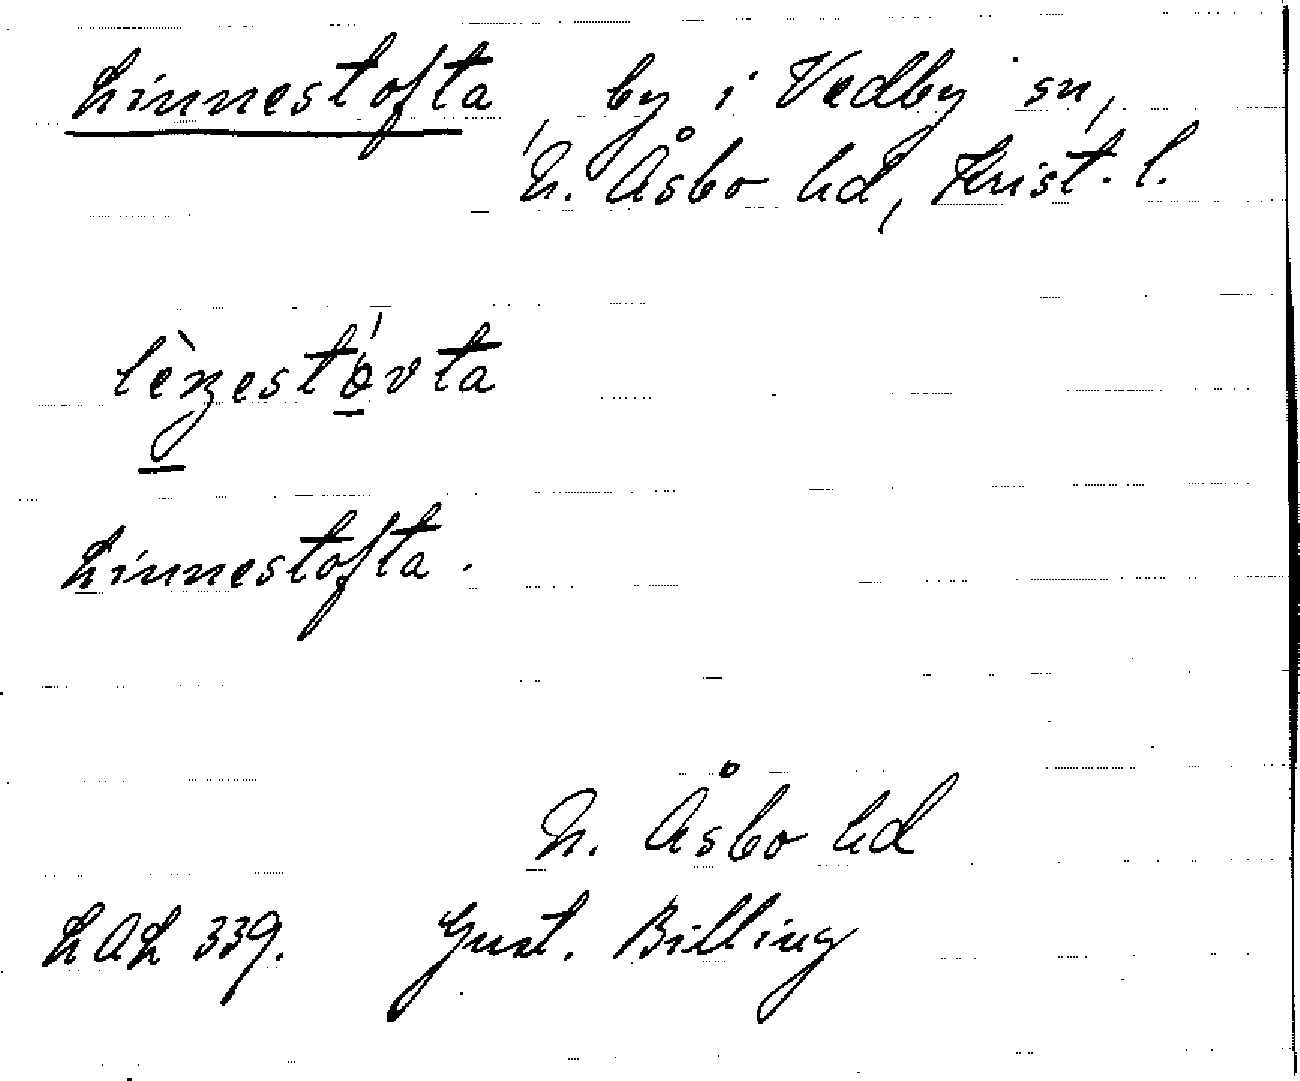 Linnestofta by i Vedby sn,
N. Åsbo hd, Krist. l.
Linnestofta.
N. Åsbo hd
LAL 339. Gust. Billing